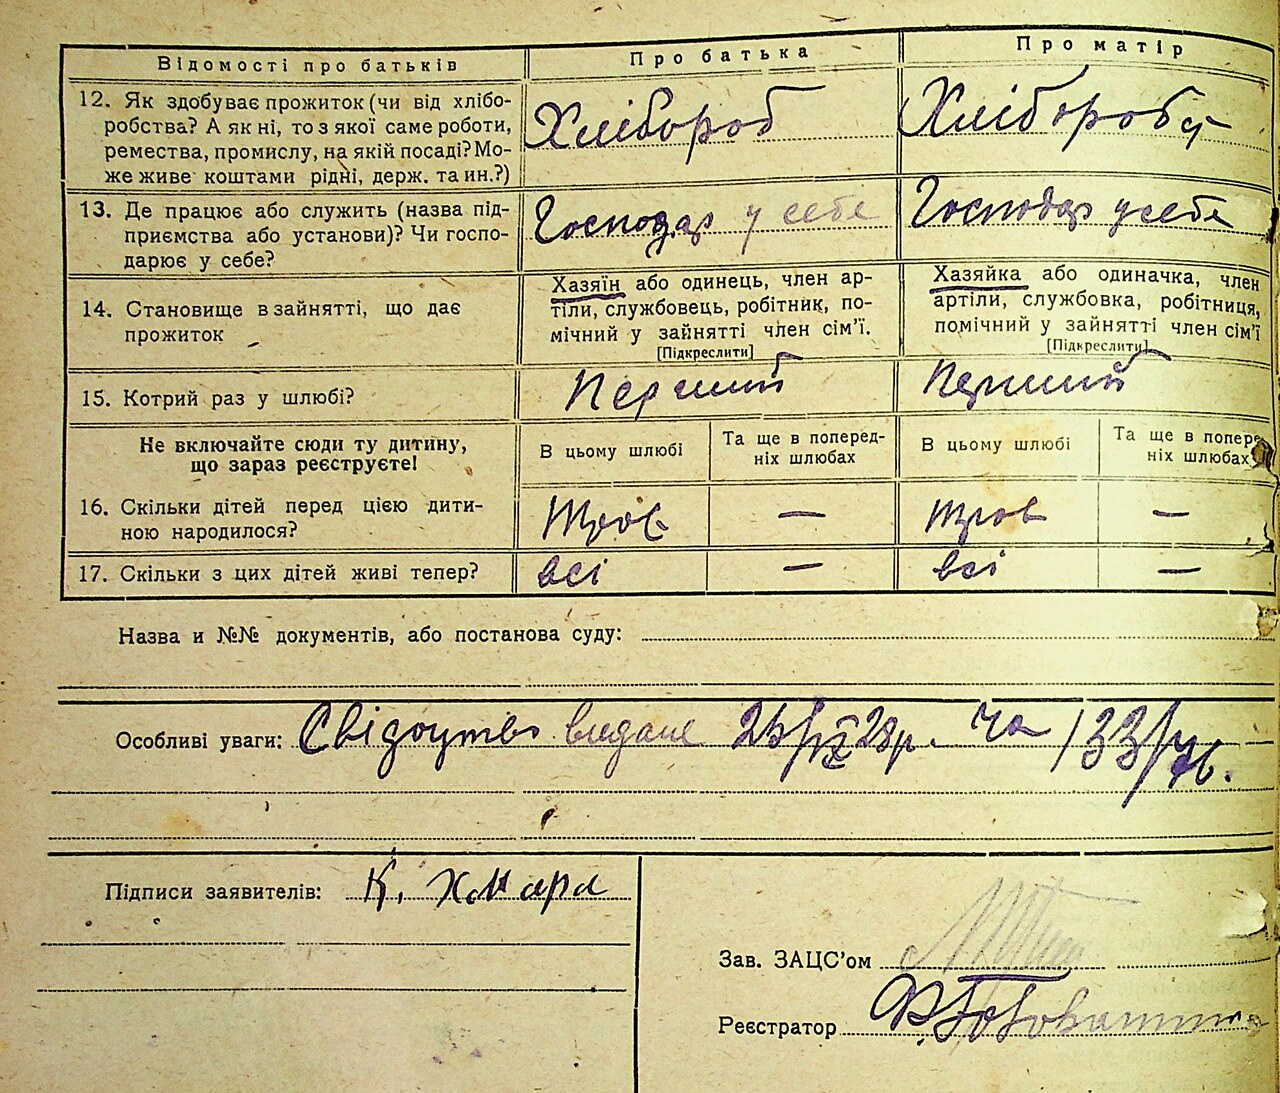 Відомості про батьків
Про батька
Про матір
12. Як здобуває прожиток (чи від хлібо-
робства? А як ні, то з якої саме роботи,
ремества, промислу, на якій посаді? Мо-
же живе коштами рідні, держ. та ин.?)
Хлібороб
Хлібороб
13. Де працює або служить (назва під-
приємства або установи)? Чи госпо-
дарює у себе?
Господар у себе
Господар у себе
14. Становище в зайнятті, що дає
прожиток
Хазяїн або одинець, член ар-
тіли, службовець, робітник, по-
мічний у зайнятті член сім'ї.
[Підкреслити]
Хазяйка або одиначка, член
артіли, службовка, робітниця,
помічний у зайнятті член сім'ї
[Підкреслити]
15. Котрий раз у шлюбі?
Перший
Перший
Не включайте сюди ту дитину,
що зараз реєструєте!
В цьому шлюбі
Та ще в поперед-
ніх шлюбах
В цьому шлюбі
Та ще в попере
ніх шлюбах
16. Скільки дітей перед цією дити-
ною народилося?
Троє
—
Троє
—
17. Скільки з цих дітей живі тепер?
всі
—
всі
—
Назва и №№ документів, або постанова суду:
Особливі уваги: Свідоцтво видане 25/IX 28р. На 133/76.
Підписи заявителів: К. Хмара
Зав. ЗАЦС'ом
Реєстратор